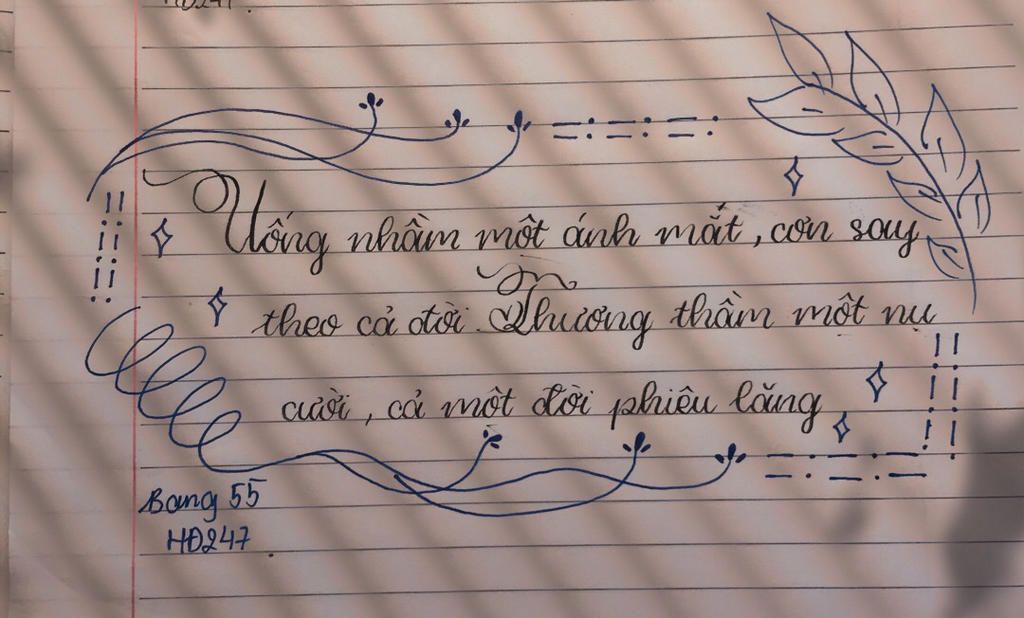 HĐ247.
Uống nhầm một ánh mắt, cơn say
theo cả đời. Thương thầm một nụ
cười, cả một đời phiêu lãng
Bang 55
HĐ247.